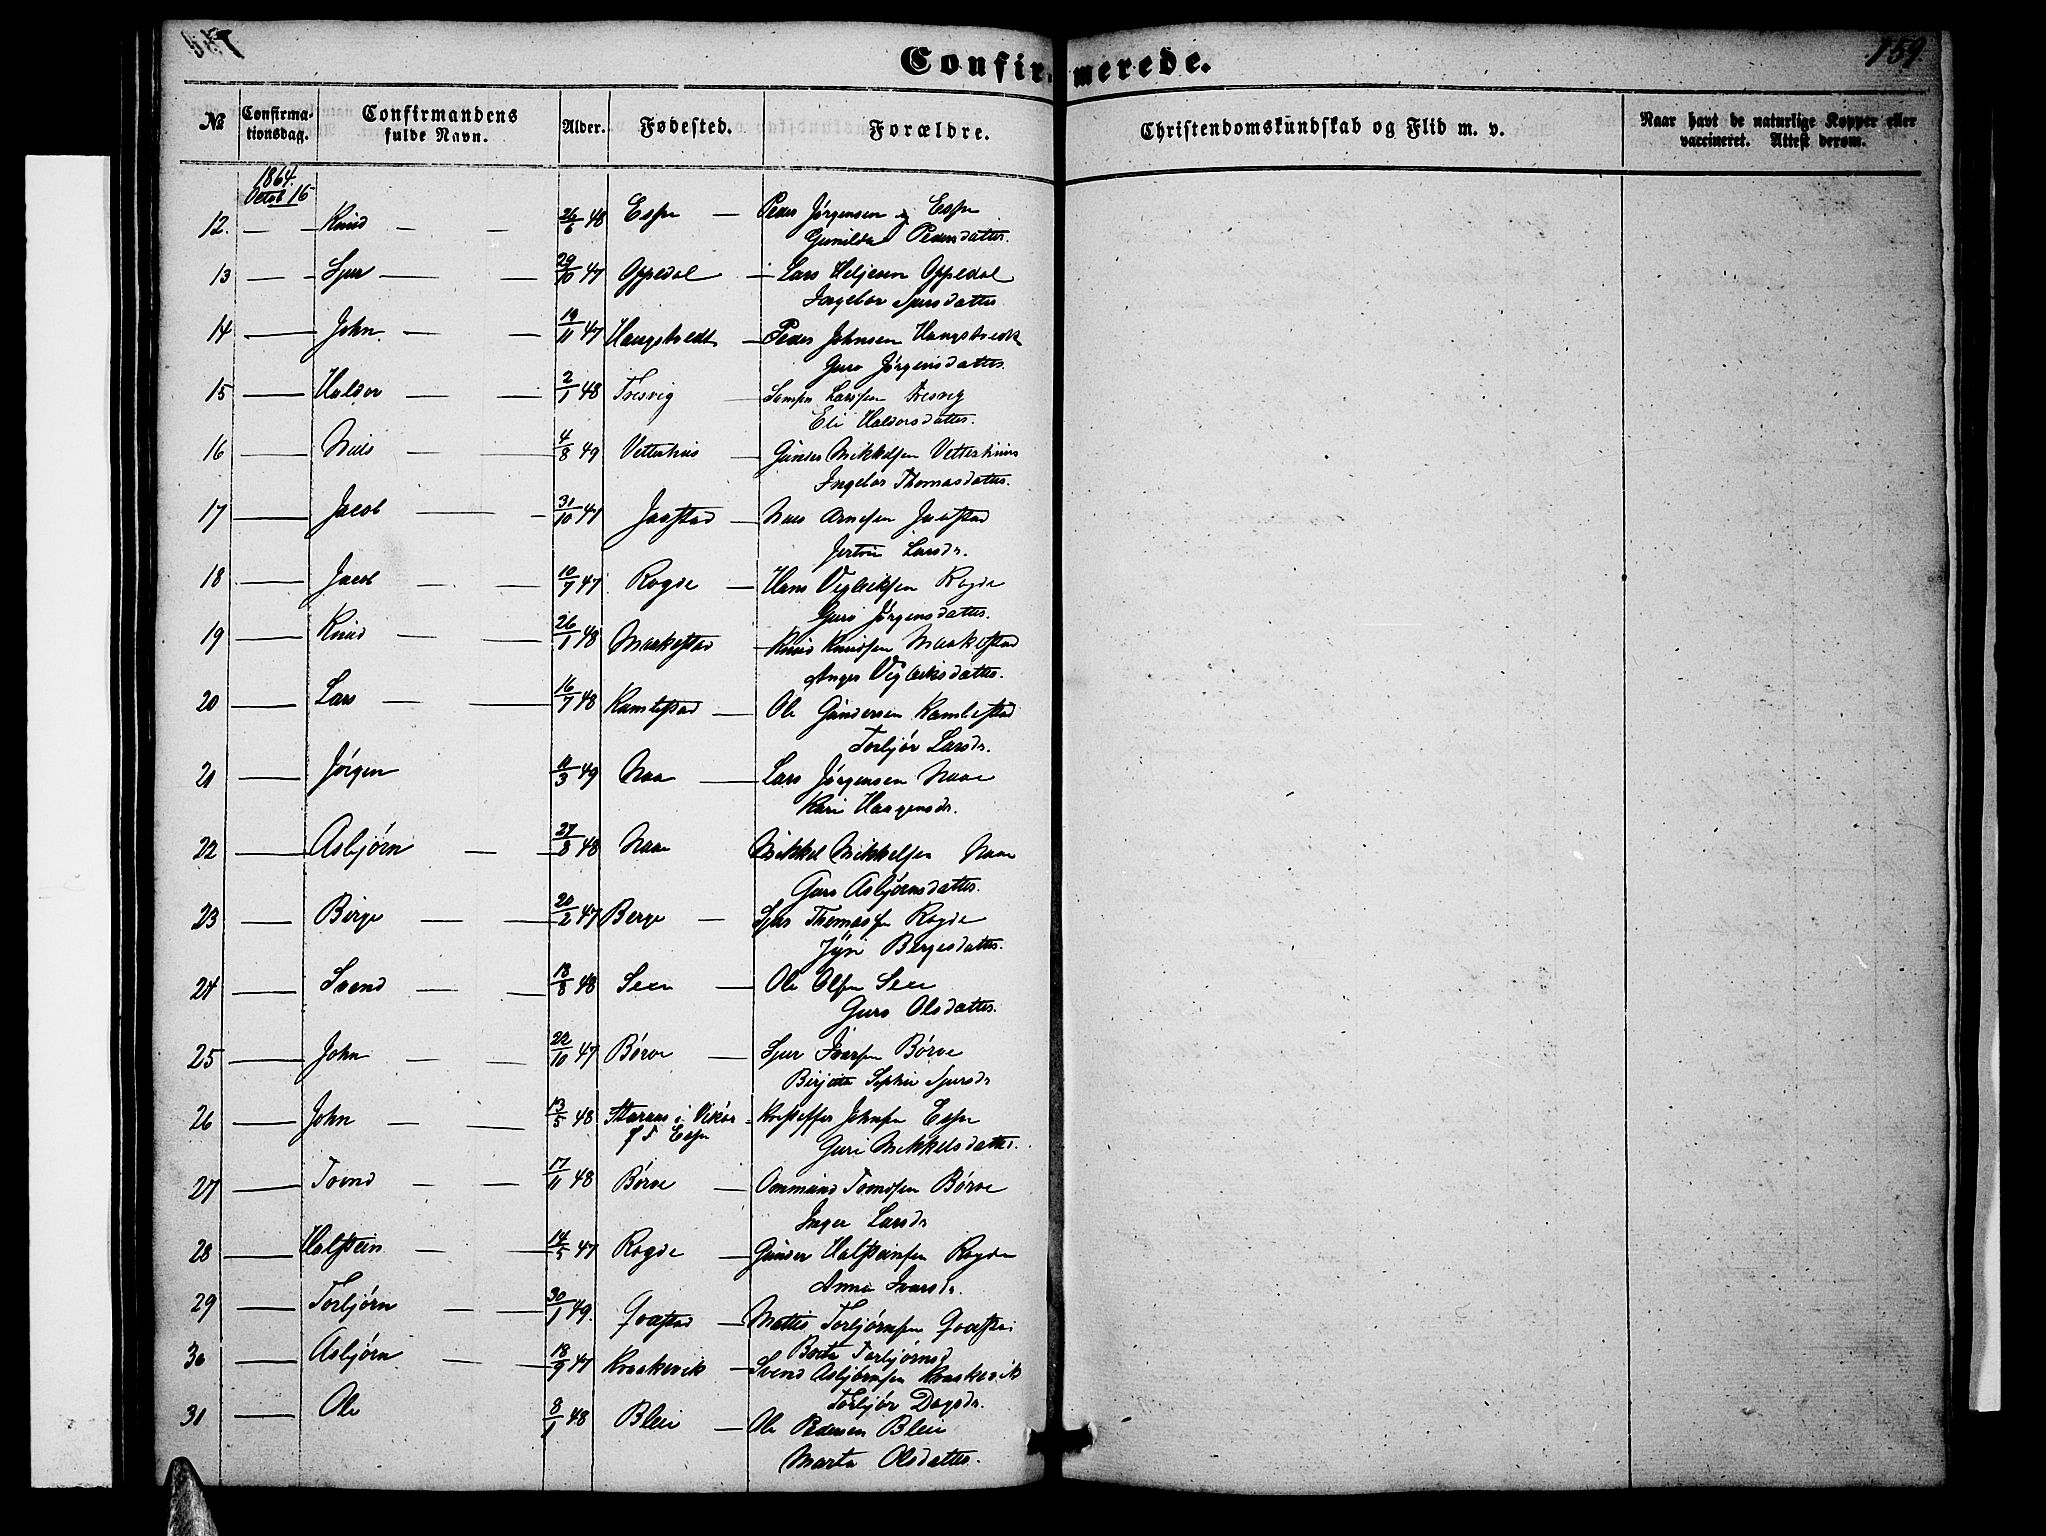 Confirmerede.
159
№
Confirma-
tionsdag.
Confirmandens
fulde Navn.
Alder.
Fødested.
Forældre.
Christendomskundskab og Flid m. v.
Naar havt de naturlige Kopper eller
vaccineret. Attest derom.
1864.
Octob 16
12. — — Knud — — 26/6 48 Espe — Peder Jørgensen Espe
Gunilda Pedersdatter.
13 — Sjur — — 29/10 47 Oppedal — Lars Heljesen Oppedal
Ingebor Sjursdatter
14 — John — — 19/11 47 Haugstvedt — Peder Johnsen Haugstvedt
Guro Jørgensdatter.
15 — Haldor — 2/1 48 Tresvig — Samson Larssen Tresvig
Eli Haldorsdatter.
16 — Nils — — 4/8 49 Vetterhus — Gunder Mikkelsen Vetterhuus
Ingebor Thomasdatter.
17 — Jacob — — 31/10 47 Jaastad — Nils Arnesen Jaastad
Larsdr.
18 — Jacob — — 10/7 47 Rogde — Hans Vigleiksen Rogde
Guro Jørgensdatter.
19 — Knud — — 26/1 48 Maakestad — Knud Knudsen Maakestad
Anger Vigleiksdatter.
20 — Lars — — 16/7 48 Kambestad — Ole Gundersen Kambestad
Torbjør Larsdr.
21 — Jørgen 11/3 49 Naa — Lars Jørgensen Naae
Kari Haagensdr.
22 — Asbjørn — — 27/8 48 Naae Mikkel Mikkelsen Naae
Guro Asbjørnsdatter.
23 — Birge — — 20/2 47 Berge — Sjur Thomassen Rogde
Bergesdatter.
24 — Svend — — 18/8 48 Sexe — Ole Olsen Sexe
Guro Olsdatter.
25 — John — — 22/10 47 Børve — Sjur Ivarsen Børve
Birjitte Sophie Sjursdr
26 — John — — 13/5 48 i Vikør Johnsen Espe
Espe
Guri Mikkelsdatter.
27 — Tvend — — 17/11 48 Børve — Ommund Tvendsen Børve
Inger Larsdr
28 — Halstein — — 14/5 47 Rogde — Gunder Halsteinsen Rogde
Anna Ivarsdr.
29 — Torbjørn — — 30/1 49. — Mattis Torbjørnsen
Torbjørnsd
30 — Asbjørn — — 18/9 47 Kraakevik — Svend Asbjørnsen Kraakevik
Torbjør Dagsdr.
31 — Ole 8/1 48 Bleie — Ole Pedersen Bleie
Marta Olsdatter.